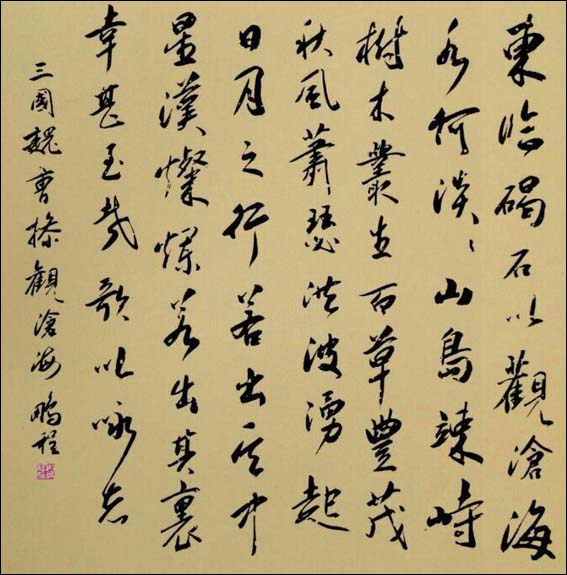 東臨碣石以觀滄海
水何淡淡山島竦峙
樹木叢生百草豐茂
秋風蕭瑟洪波湧起
日月之行若出其中
星漢燦爛若出其裏
幸甚至哉歌以詠志
三國魏曹操觀滄海 鵬程